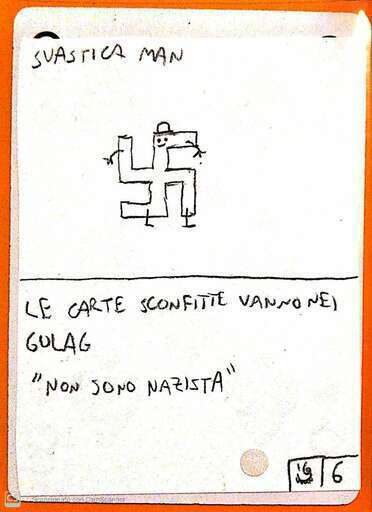 SVASTICA MAN
LE CARTE SCONFITTE VANNO NEI
GULAG
"NON SONO NAZISTA"
6
Scansionato con CamScanner